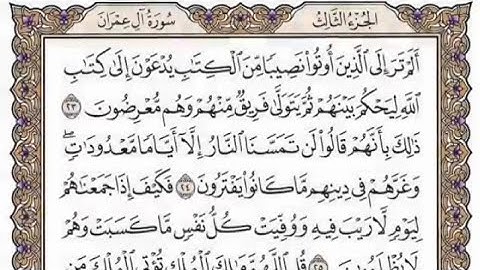 الجزء الثالث سورة آل عمران
ألم تر إلى الذين أوتوا نصيبا من الكتاب يدعون إلى كتاب
الله ليحكم بينهم ثم يتولى فريق منهم وهم معرضون ٢٣
ذلك بأنهم قالوا لن تمسنا النار إلا أياما معدودات
وغرهم في دينهم ما كانوا يفترون ٢٤ فكيف إذا جمعناهم
ليوم لا ريب فيه ووفيت كل نفس ما كسبت وهم
لا يظلمون ٢٥ قل اللهم مالك الملك تؤتي الملك من